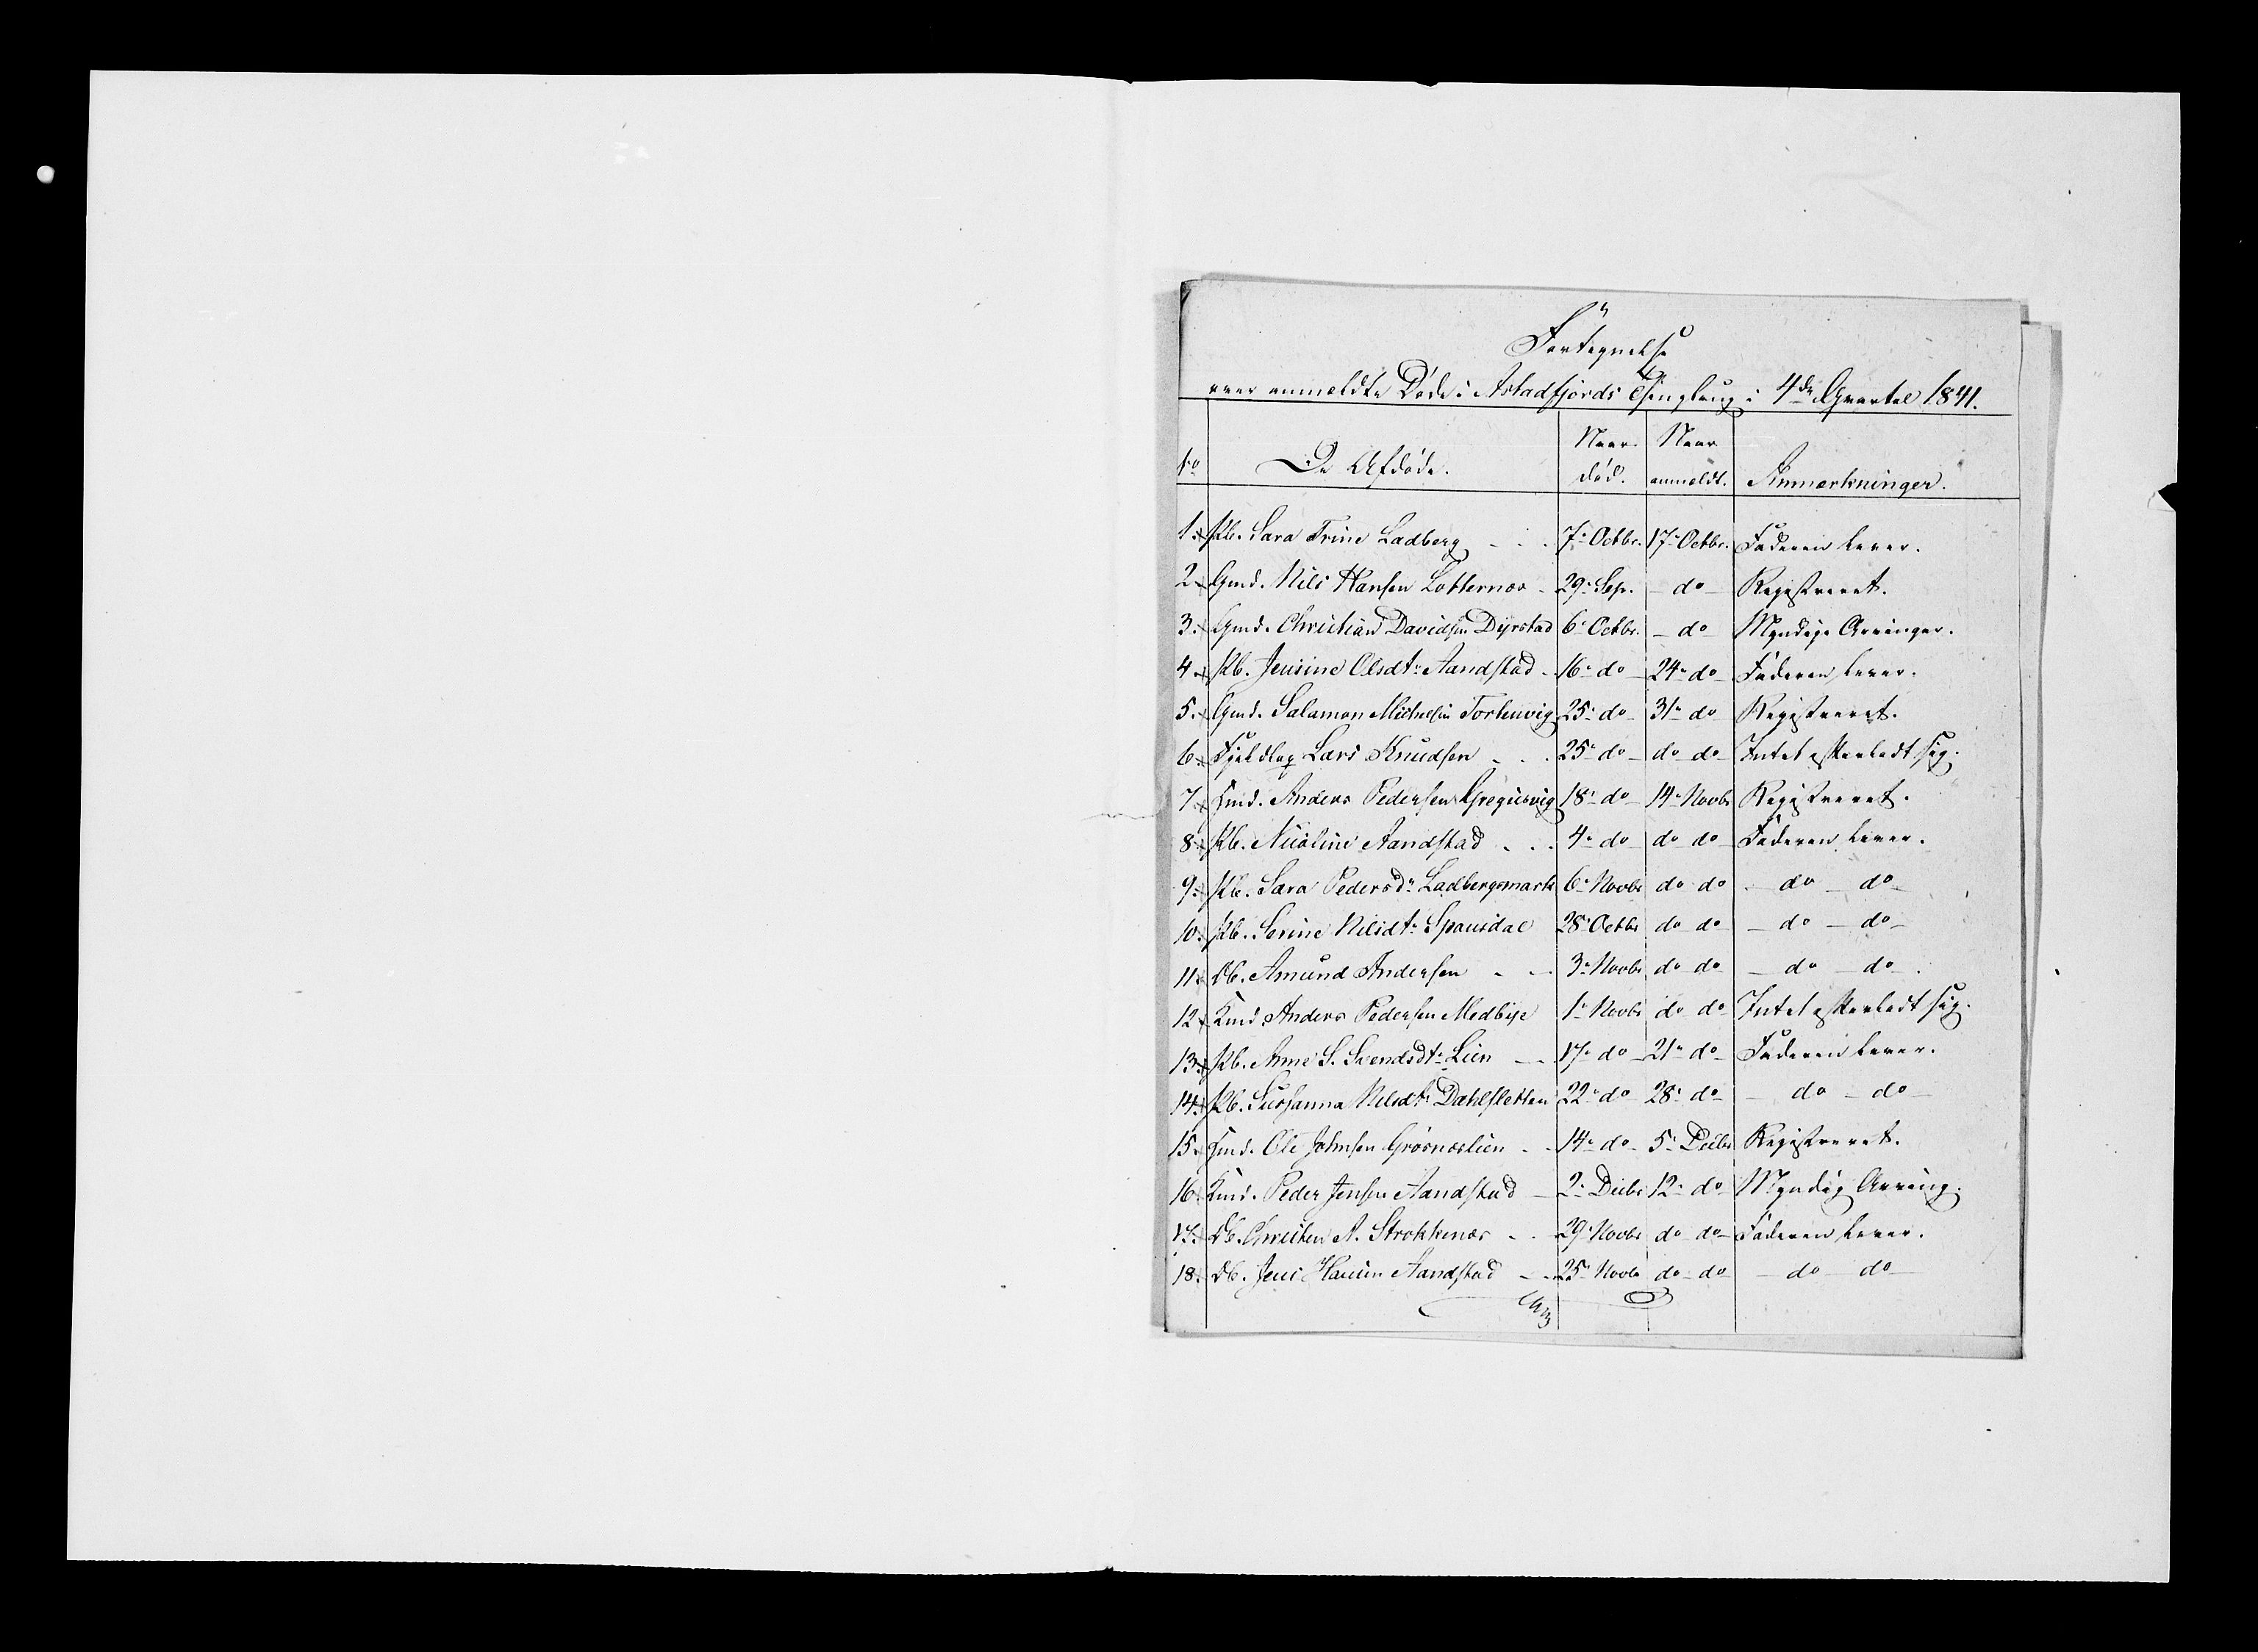 Fortegnelse
over anmeldte Døde i Astadfjords Thinglaug i 4de Qvartal 1841.
No De Afdøde. Naar død. Naar anmeldt. Anmærkninger.
1. Pb. Sara Trine Ladberg - - 7. Octbr. 17. Octbr. Faderen lever.
2. Gmd. Nils Hansen Lotternæs - 29. Sep. - do - Registreret.
3. Gmd. Christian Davidsen Dyrstad 6. Octbr. - do - Myndige Arvinger.
4. Pb. Jensine Olsdt. Aandstad - 16. do - 24. do - Faderen lever.
5. Gmd. Salamon Michelsen Torkenvig 25. do - 31. do - Registreret.
6. Fjeldlap Lars Knudsen - - 25. do - do do - Intet efterladt sig.
7. Hmd. Anders Pedersen Gregusvig 18. do - 14. Novbr Registreret.
8. Pb. Nicoline Aandstad - - 4. do - do do - Faderen lever.
9. Pb. Sara Pedersd. Ladbergsmark 6. Novbr do do - do - do -
10. Pb. Serine Nilsdt. Spansdal 28. Octbr do do - do - do -
11. Db. Amund Andersen - - 3. Novbr do do - do - do -
12. Kmd. Anders Pedersen Medbye 1. Novbr do do Intet efterladt sig.
13. Pb. Anne S. Svendsdt. Lien - 17. do - 21. do - Faderen lever.
14. Pb. Susanna Nilsdt. Dahlsletten 22. do 28. do - - do - do -
15. Hmd. Ole Johnsen Grøsnæslien - 14. do - 5. Decbr Registreret.
16. Kmd. Peder Jensen Aandstad - 2. Decbr 12. do - Myndig Arving.
17. Db. Christen A. Strokkenæs - - 29. Novbr do do - Faderen lever.
18. Db. Jens Hansen Aandstad - - 25. Novbr do do - - do - do -